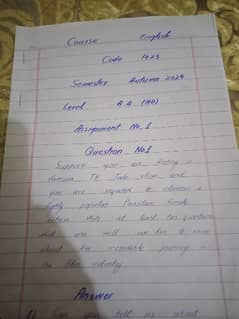 Course English
Code 1423
Semester Autumn 2024
Level A A (AD)
Assignment No.1
Question No.1
Suppose you are hosting a
famous TV Talk show and
you are required to interview a
highly popular Pakistani female
at least ten questions
and
about her incredible journey in
the film industry.
Answer
you tell us about